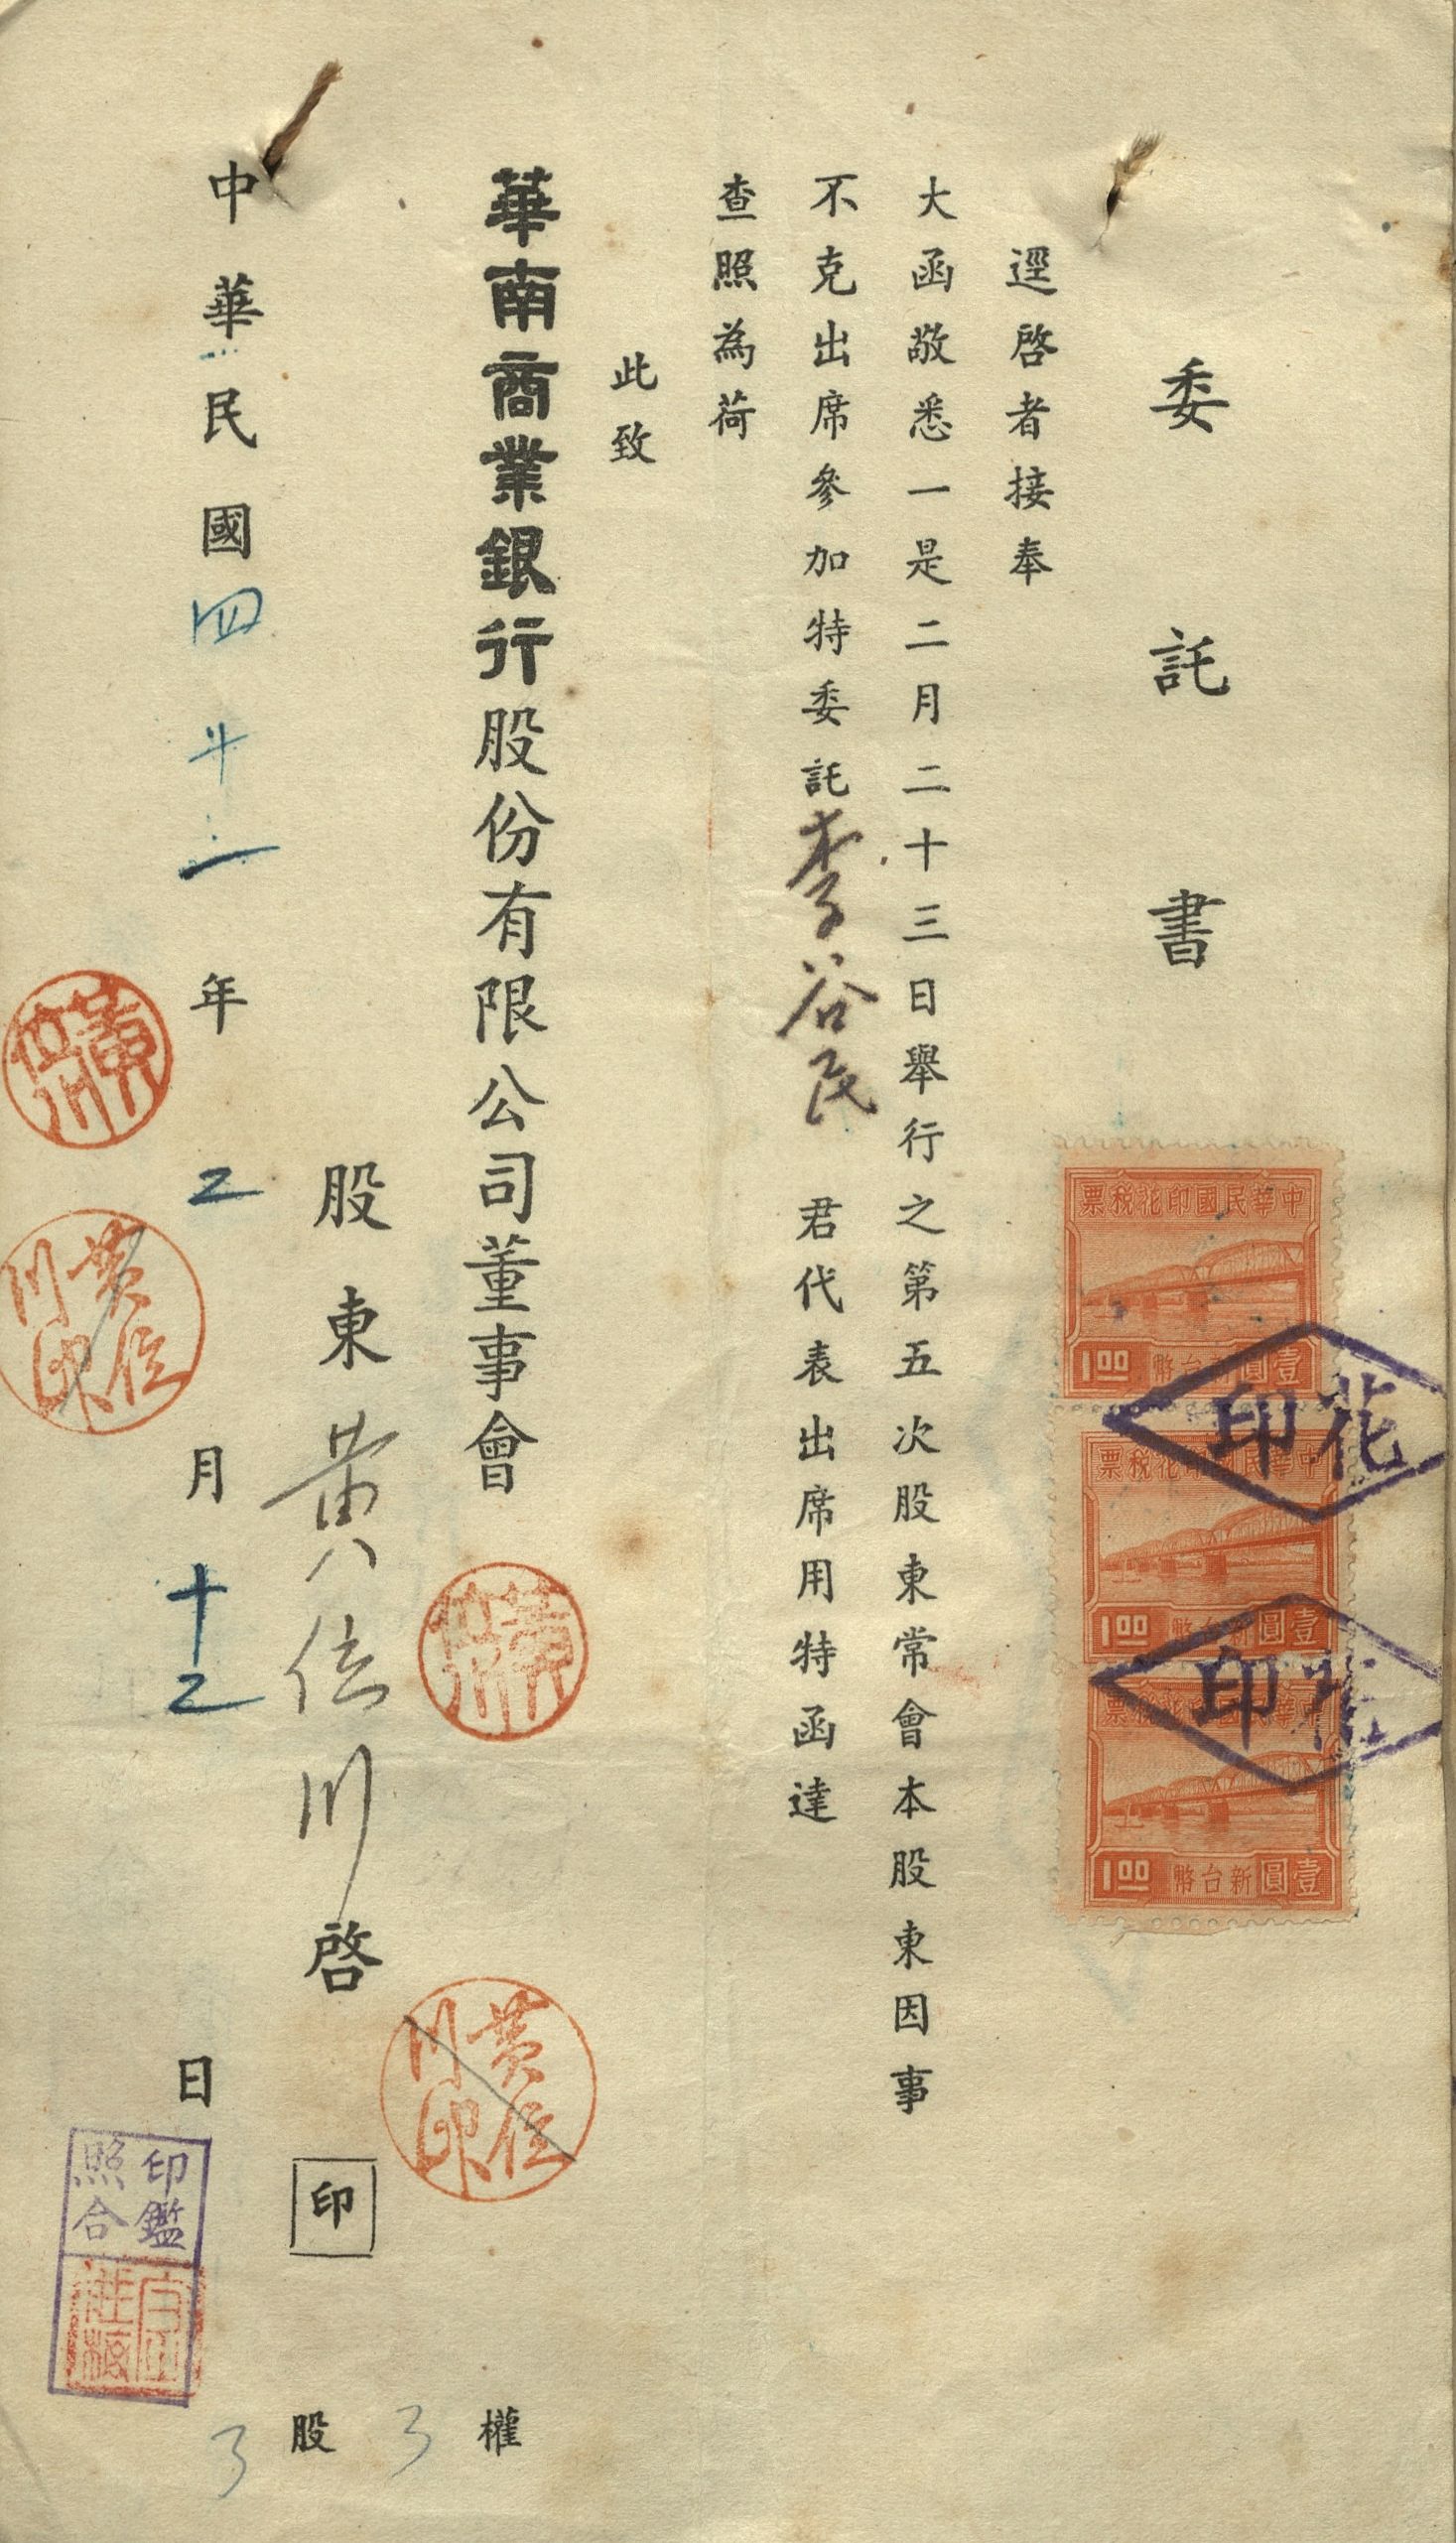 委託書
逕啓者接奉
大函敬悉一是二月二十三日舉行之第五次股東常會本股東因事
不克出席參加特委託李谷民君代表出席用特函達
查照為荷
此致
華南商業銀行股份有限公司董事會
股東黃位川啓
印
中華民國四十一年2月十2日
權3
股3
中華民國印花稅票
壹圓新台幣1.00
中華民國印花稅票
壹圓新台幣1.00
中華民國印花稅票
壹圓新台幣1.00
花印
花印
黃位川
黃位川印
黃位川
黃位川印
印鑑照合